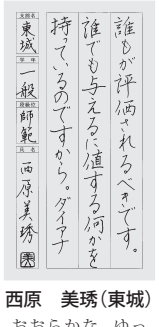 誰もが評価されるべきです。
誰でも与えるに値する何かを
持っているのですから。ダイアナ
支部名 東城
学年 一般
段級位 師範
氏名 西原美琇
美
西原 美琇(東城)
おおらかな、ゆっ